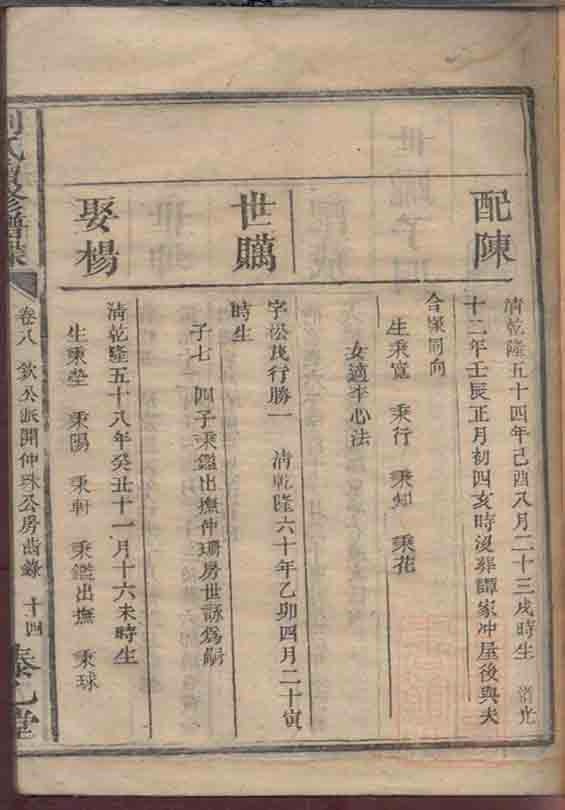 配陳
清乾隆五十四年己酉八月二十三戌時生 道光
十二年壬辰正月初四亥時没葬譚家冲屋後與夫
合塚同向
生秉寬 秉行 秉知 秉花
女適李心法
世贎
字松茂行勝一 清乾隆六十年乙卯四月二十寅
時生
子七 四子秉鑑出撫仲珊房世詠爲嗣
娶楊
清乾隆五十八年癸丑十一月十六未時生
生秉瑩 秉陽 秉軒 秉鑑出撫 秉球
氏 修譜牒
卷八 欽公派開仲珠公房齒錄 十四
堂